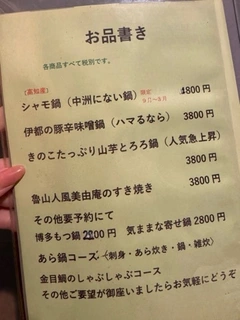 お品書き
各商品すべて税別です。
[高知産]
シャモ鍋（中洲にない鍋）限定 9月〜3月 4800円
伊都の豚辛味噌鍋（ハマるなら） 3800円
きのこたっぷり山芋とろろ鍋（人気急上昇）
3800円
魯山人風美由庵のすき焼き 3800円
その他要予約にて
博多もつ鍋2200円 気ままな寄せ鍋2800円
あら鍋コース（刺身・あら炊き・鍋・雑炊）
金目鯛のしゃぶしゃぶコース
その他ご要望が御座いましたらお気軽にどうぞ